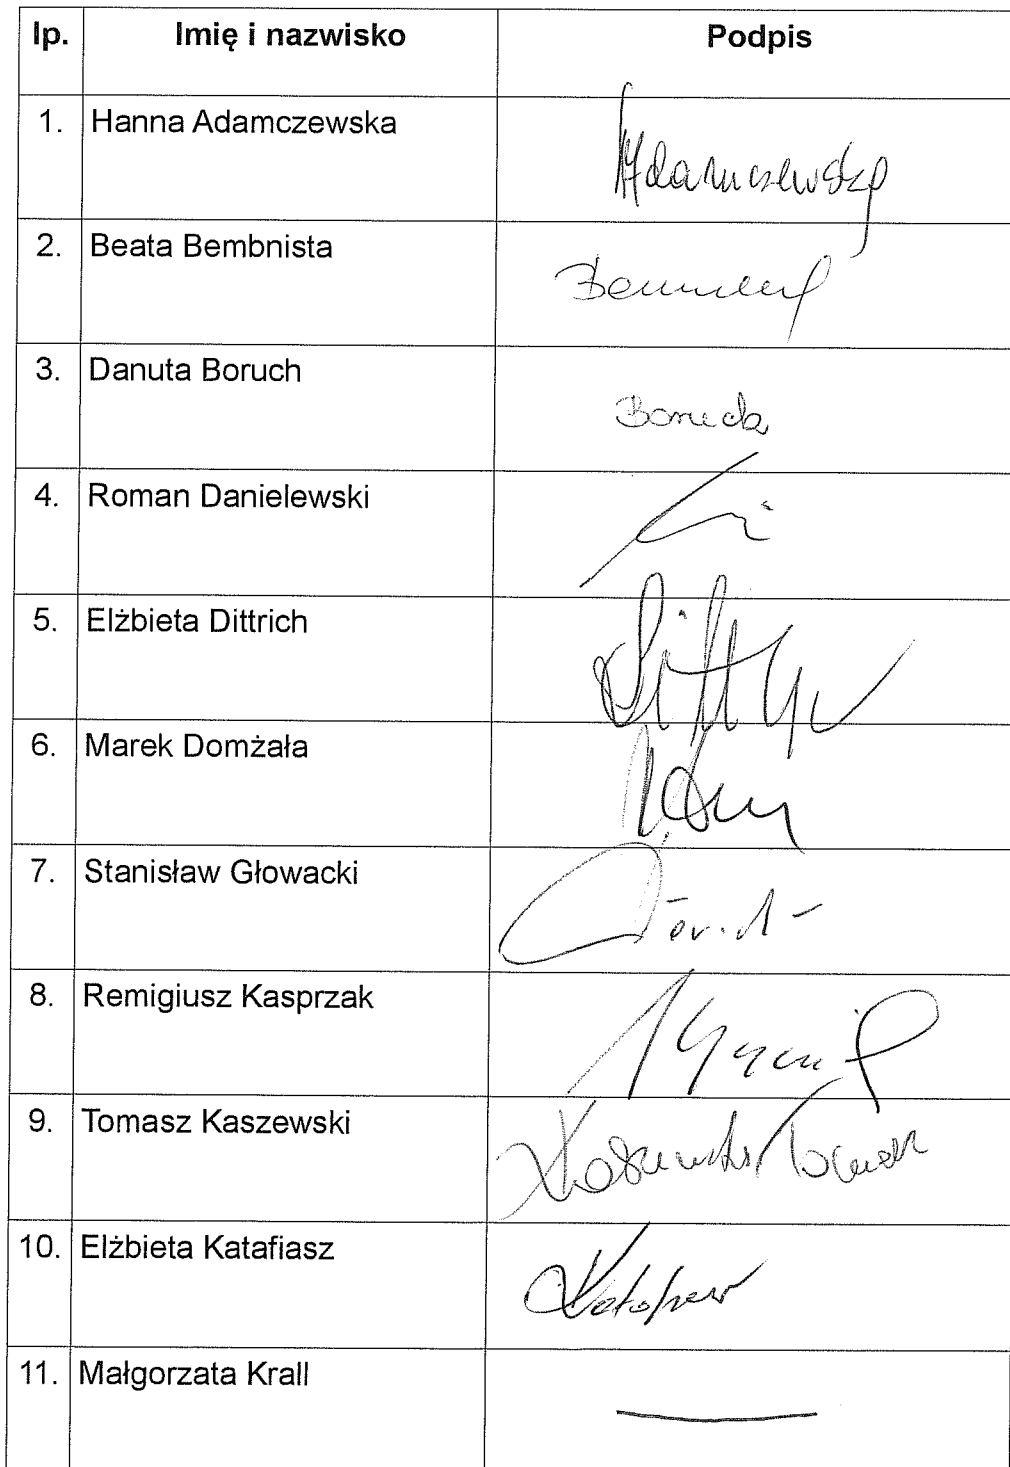 lp. Imię i nazwisko Podpis
1. Hanna Adamczewska HAdamczewska
2. Beata Bembnista
3. Danuta Boruch
4. Roman Danielewski
5. Elżbieta Dittrich
6. Marek Domżała
7. Stanisław Głowacki
8. Remigiusz Kasprzak
9. Tomasz Kaszewski Kaszewski Tomasz
10. Elżbieta Katafiasz
11. Małgorzata Krall